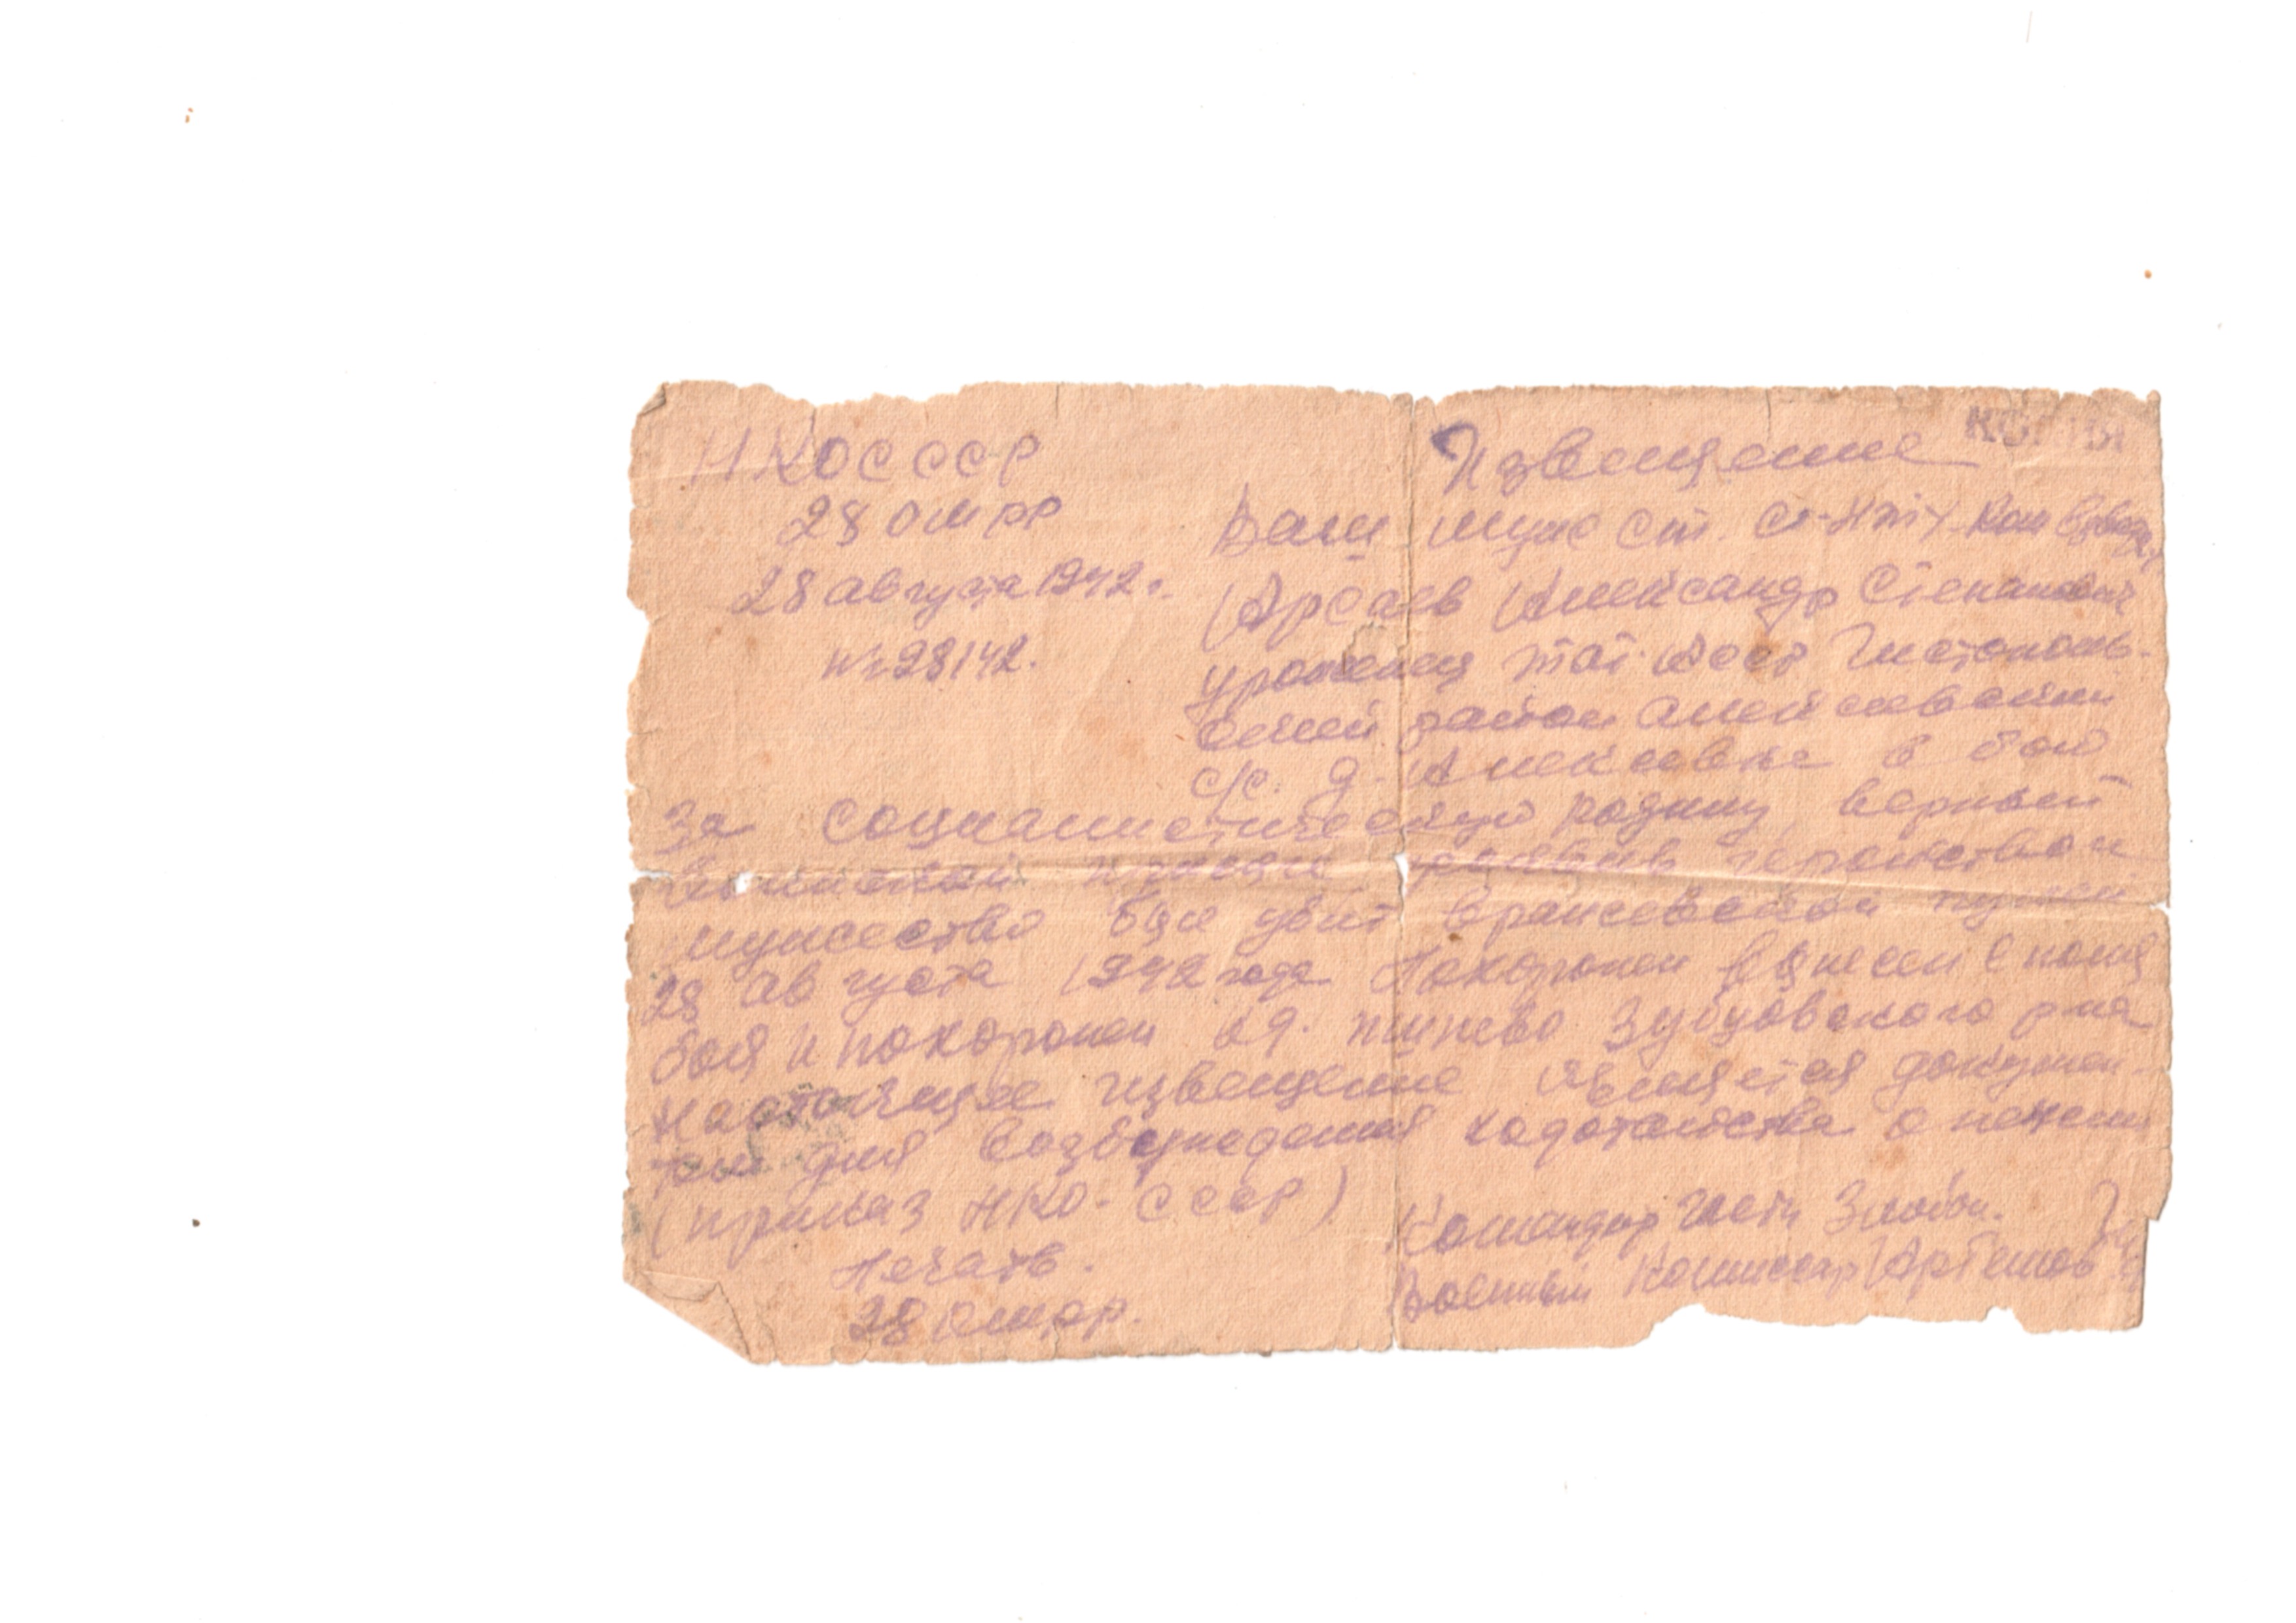 НКО СССР
28 ОМРР
28 августа 1942 г.
№ 28/42.
КОПИЯ
Извещение
Ваш муж ст. с-нт Ком взвода
Арсаев Александр Степанович
уроженец Тат. АССР Чистополь-
ский район Алексеевский
с/с. д. Алексеевка в бою
За социалистическую родину, верный
воинской присяге
мужество был убит вражеской пулей
28 августа 1942 года Похоронен вынесен с поля
боя и похоронен в д. Зубцовского р-на
Настоящее извещение является докумен-
том для возбуждения ходотайства о пенсии
(приказ НКО-СССР)
Печать.
28 ОМРР.
Командир части Злобин.
Военный Комиссар Артемов